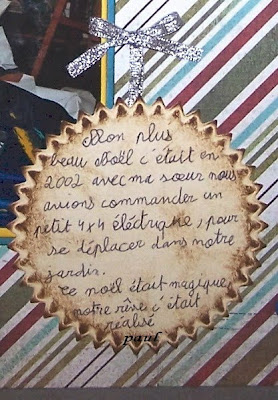 Mon plus
beau Noël c'était en
2002 avec ma sœur nous
avions commander un
petit 4x4 éléctrique, pour
se déplacer dans notre
jardin.
Ce noël était magique,
notre rêve c'était
réalisé
paul